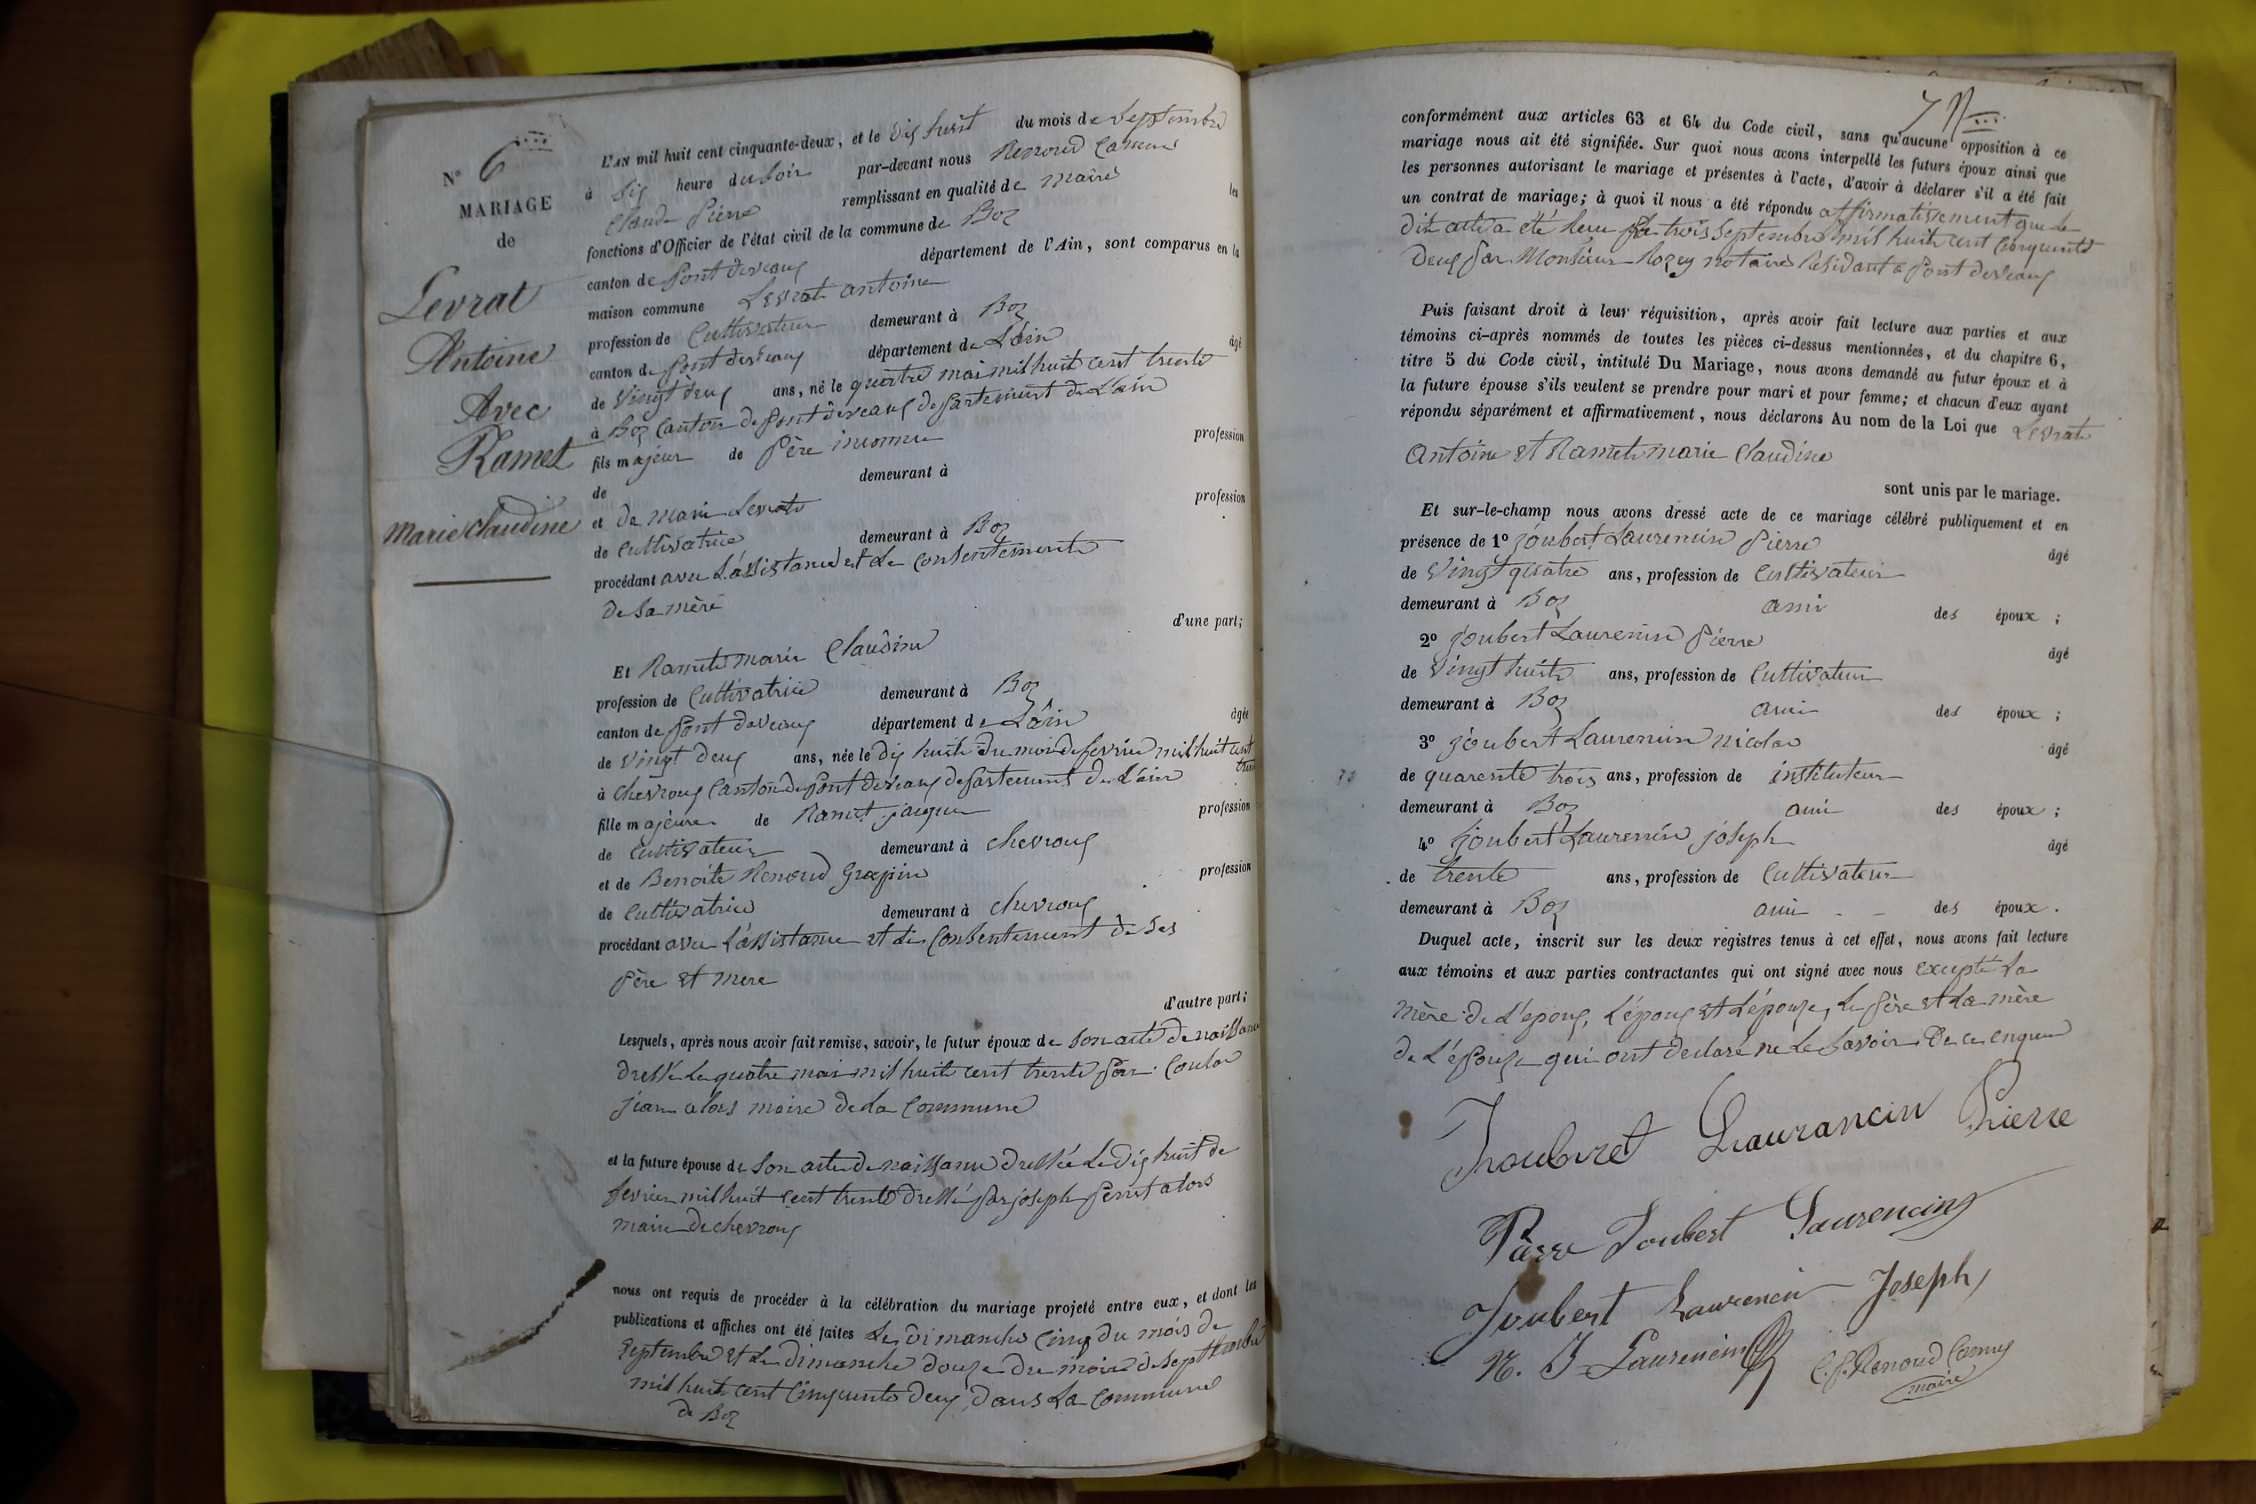 N° 6
MARIAGE
de
Levrat
Antoine
Avec
Ramet
marie claudine
L'AN mil huit cent cinquante-deux, et le dix huit du mois de septembre
à six heure du soir par-devant nous Renoud Camus
Claude Pierre remplissant en qualité de maire les
fonctions d'Officier de l'état civil de la commune de Boz
canton de pont devaux département de l'Ain, sont comparus en la
maison commune Levrat antoine
profession de Cultivateur demeurant à Boz
canton de pont devaux département de L'ain âgé
de vingt deux ans, né le quatre mai mil huit cent trente
à Boz Canton de pont devaux departement de L'ain
fils majeur de Père inconnu profession
de demeurant à
et de marie Levrat profession
de Cultivatrice demeurant à Boz
procédant avec L'assistance et Le Consentement
de sa mère
d'une part;
Et Ramet marie Claudine
profession de Cultivatrice demeurant à Boz
canton de pont devaux département de L'ain âgée
de vingt deux ans, née le dix huit du mois de fevrier mil huit cent
trente
à chevroux Canton de pont devaux departement de L'ain
fille majeure de Ramet jacques profession
de cultivateur demeurant à chevroux
et de Benoite Renoud Grappin profession
de Cultivatrice demeurant à chevroux
procédant avec L'assistance et Le Consentement de ses
père et mere
d'autre part;
Lesquels, après nous avoir fait remise, savoir, le futur époux de son acte de naissance
dressé Le quatre mai mil huit cent trente par Coulas
jean alors maire de La Commune
et la future épouse de son acte de naissance dressée Le dix huit de
fevrier mil huit cent trente dressé par joseph alors
maire de chevroux
nous ont requis de procéder à la célébration du mariage projeté entre eux, et dont les
publications et affiches ont été faites Le dimanche Cinq du mois de
septembre et Le dimanche douze du mois de septembre
mil huit cent Cinquante deux dans La Commune
de Boz
conformément aux articles 63 et 64 du Code civil, sans qu'aucune opposition à ce
mariage nous ait été signifiée. Sur quoi nous avons interpellé les futurs époux ainsi que
les personnes autorisant le mariage et présentes à l'acte, d'avoir à déclarer s'il a été fait
un contrat de mariage; à quoi il nous a été répondu affirmativement que le
dit acte a été Le trois septembre mil huit cent Cinquante
deux par Monsieur notaire Residant à pont devaux
Puis faisant droit à leur réquisition, après avoir fait lecture aux parties et aux
témoins ci-après nommés de toutes les pièces ci-dessus mentionnées, et du chapitre 6,
titre 5 du Code civil, intitulé Du Mariage, nous avons demandé au futur époux et à
la future épouse s'ils veulent se prendre pour mari et pour femme; et chacun d'eux ayant
répondu séparément et affirmativement, nous déclarons Au nom de la Loi que Levrat
Antoine et Ramet marie Claudine
sont unis par le mariage.
Et sur-le-champ nous avons dressé acte de ce mariage célébré publiquement et en
présence de 1° joubert Laurencin Pierre âgé
de vingt quatre ans, profession de Cultivateur
demeurant à Boz ami des époux;
2° joubert Laurencin Pierre âgé
de vingt huit ans, profession de Cultivateur
demeurant à Boz ami des époux;
3° joubert Laurencin nicolas âgé
de quarente trois ans, profession de instituteur
demeurant à Boz ami des époux;
4° joubert Laurencin joseph âgé
de trente ans, profession de Cultivateur
demeurant à Boz ami des époux.
Duquel acte, inscrit sur les deux registres tenus à cet effet, nous avons fait lecture
aux témoins et aux parties contractantes qui ont signé avec nous excepté La
mère de L'epoux, L'époux et L'épouse, Le père et La mère
de L'épouse qui ont declaré ne Le savoir de ce enquis
Joubret Laurancin Pierre
Pierre Joubert Laurencin
Joubert Laurencin Joseph
N. J. Laurencin
C. P. Renoud Camus
maire